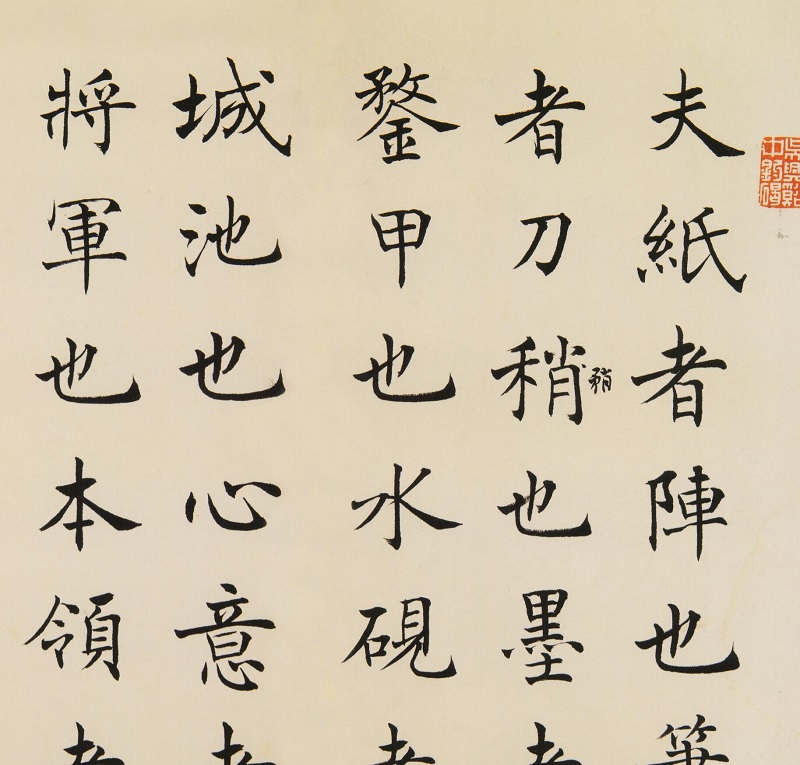 夫紙者陣也筆
者刀稍也墨者
矟
鍪甲也水硯者
城池也心意者
將軍也本領者